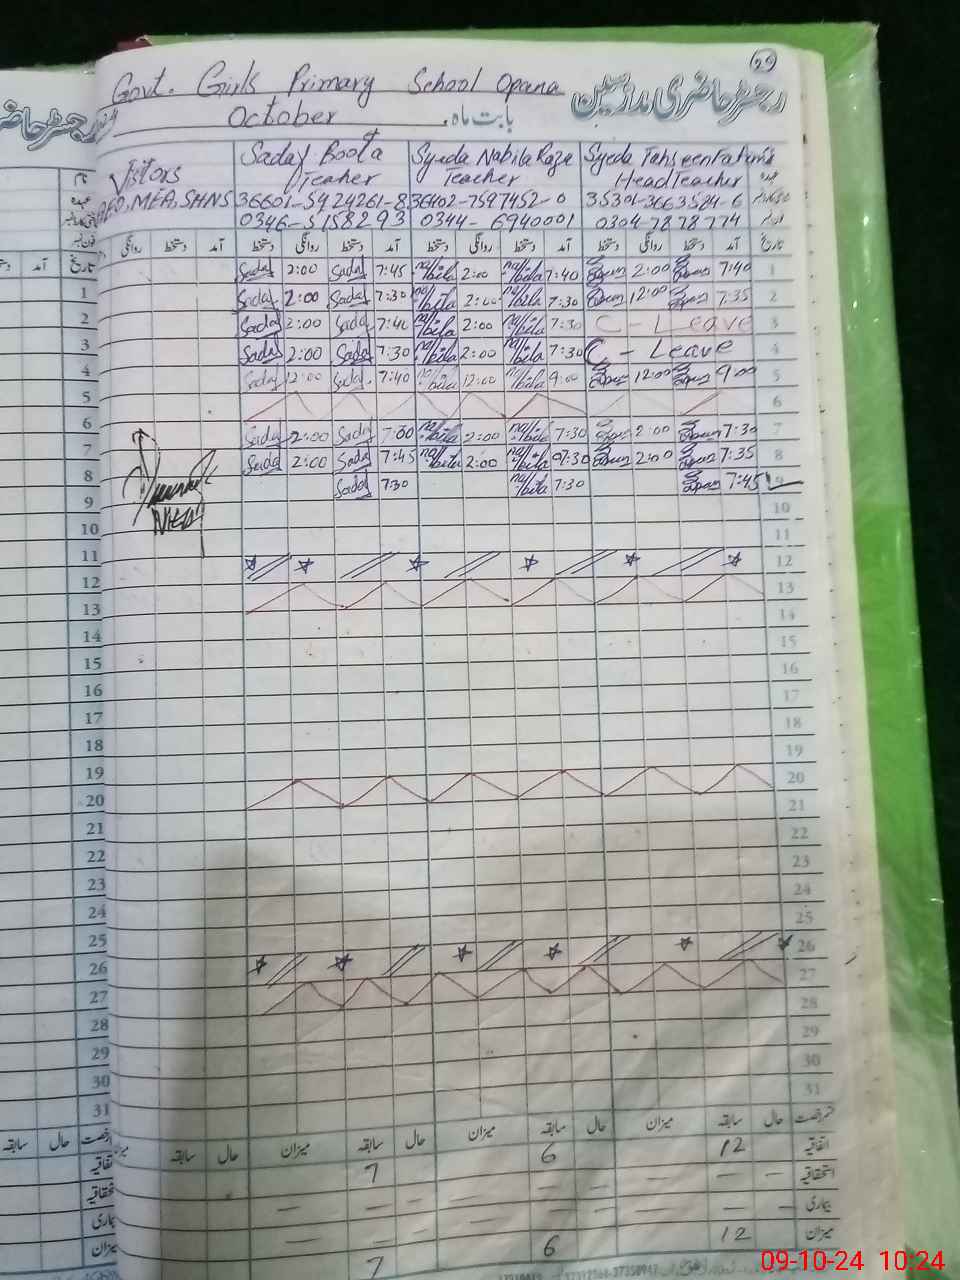 29
Govt. Girls Primary School Opana رجسٹر حاضری مدرسین
October بابت ماہ
Visitors Sadaf Boota Syeda Nabila Raza Syeda Tahseen Fatima
Teacher Teacher Head Teacher
AEO, MEA, SHNS 36601-5924261-8 36402-7597452-0 35301-3663524-6
0346-5158293 0344-6940001 0304-7878774
روانگی دستخط آمد دستخط روانگی دستخط آمد دستخط روانگی دستخط آمد دستخط روانگی دستخط آمد تاریخ
Sadaf 2:00 Sadaf 7:45 Nabila 2:00 Nabila 7:40 2:00 7:40 1
Sadaf 2:00 Sadaf 7:30 Nabila 2:00 Nabila 7:30 12:00 7:35 2
Sadaf 2:00 Sadaf 7:40 Nabila 2:00 Nabila 7:30 C - Leave 3
Sadaf 2:00 Sadaf 7:30 Nabila 2:00 Nabila 7:30 C - Leave 4
Sadaf 12:00 Sadaf 7:40 Nabila 12:00 Nabila 9:00 12:00 9:00 5
6
Sadaf 2:00 Sadaf 7:30 Nabila 2:00 Nabila 7:30 2:00 7:30 7
Sadaf 2:00 Sadaf 7:45 Nabila 2:00 Nabila 7:30 2:00 7:35 8
Sadaf 7:30 Nabila 7:30 7:45 9
10
11
12
13
14
15
16
17
18
19
20
21
22
23
24
25
26
27
28
29
30
31
سابقہ حال میزان سابقہ حال میزان سابقہ حال میزان سابقہ حال
7 6 12 اتفاقیہ
استحقاقیہ
بیماری
7 6 12 میزان
آمد تاریخ
1
2
3
4
5
6
7
8
9
10
11
12
13
14
15
16
17
18
19
20
21
22
23
24
25
26
27
28
29
30
31
سابقہ حال
بیماری
میزان
09-10-24 10:24